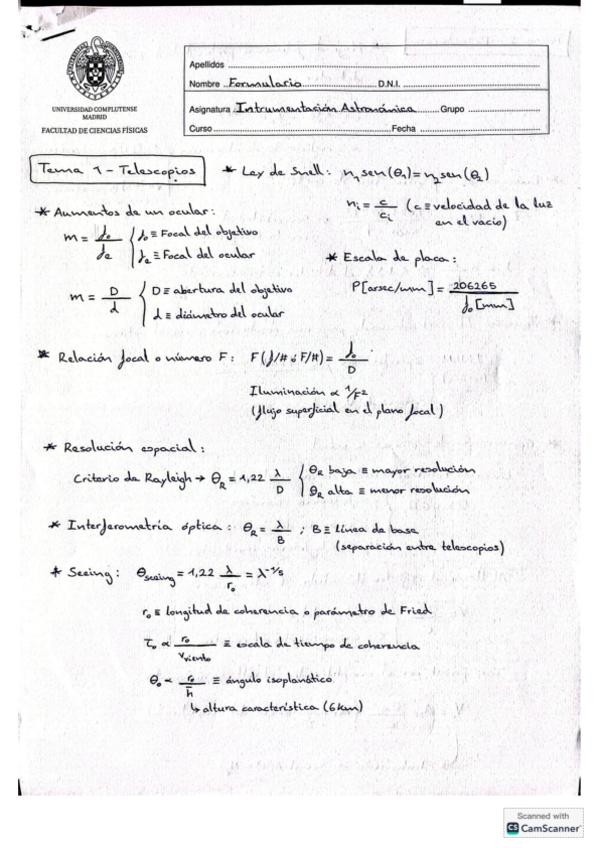 UNIVERSIDAD COMPLUTENSE
MADRID
FACULTAD DE CIENCIAS FÍSICAS
Apellidos
Nombre Formulario D.N.I.
Asignatura Intrumentación Astronómica Grupo
Curso Fecha
Tema 1 - Telescopios
* Ley de Snell: n₁ sen(θ₁) = n₂ sen(θ₂)
nᵢ = c/cᵢ (c ≡ velocidad de la luz
en el vacío)
* Aumentos de un ocular:
m = fₒ/fₑ { fₒ ≡ Focal del objetivo
fₑ ≡ Focal del ocular
m = D/d { D ≡ abertura del objetivo
d ≡ diámetro del ocular
* Escala de placa:
P[arsec/mm] = 206265/fₒ[mm]
* Relación focal o número F: F(f/# ó F/#) = fₒ/D
Iluminación ∝ 1/F²
(flujo superficial en el plano focal)
* Resolución espacial:
Criterio de Rayleigh → θ_R = 1,22 λ/D { θ_R baja ≡ mayor resolución
θ_R alta ≡ menor resolución
* Interferometría óptica: θ_R = λ/B ; B ≡ Línea de base
(separación entre telescopios)
* Seeing: θ_seeing = 1,22 λ/r₀ = λ^-1/5
r₀ ≡ longitud de coherencia o parámetro de Fried
τ₀ ∝ r₀/v_viento ≡ escala de tiempo de coherencia
θ₀ ∝ r₀/h̄ ≡ ángulo isoplanático
↳ altura característica (6km)
Scanned with
CS CamScanner